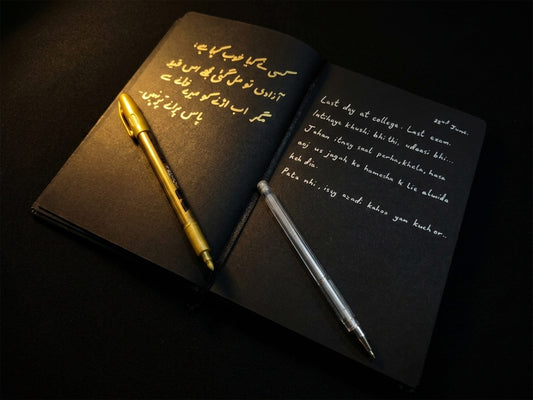 کسی نے کیا خوب کہا ہے،
آزادی تو مل گئی مجھے اس قید
خانے سے
مگر اب اڑنے کو میرے
پاس پرانے پر نہیں۔
22nd June.
Last day at college. Last exam.
Intihaye khushi bhi thi, udaasi bhi...
Jahan itney saal parha, khela, hasa
aaj us jagah ko hamesha k lie alwida
keh dia.
Pata nhi, isey azadi kahoo yan kuch or..